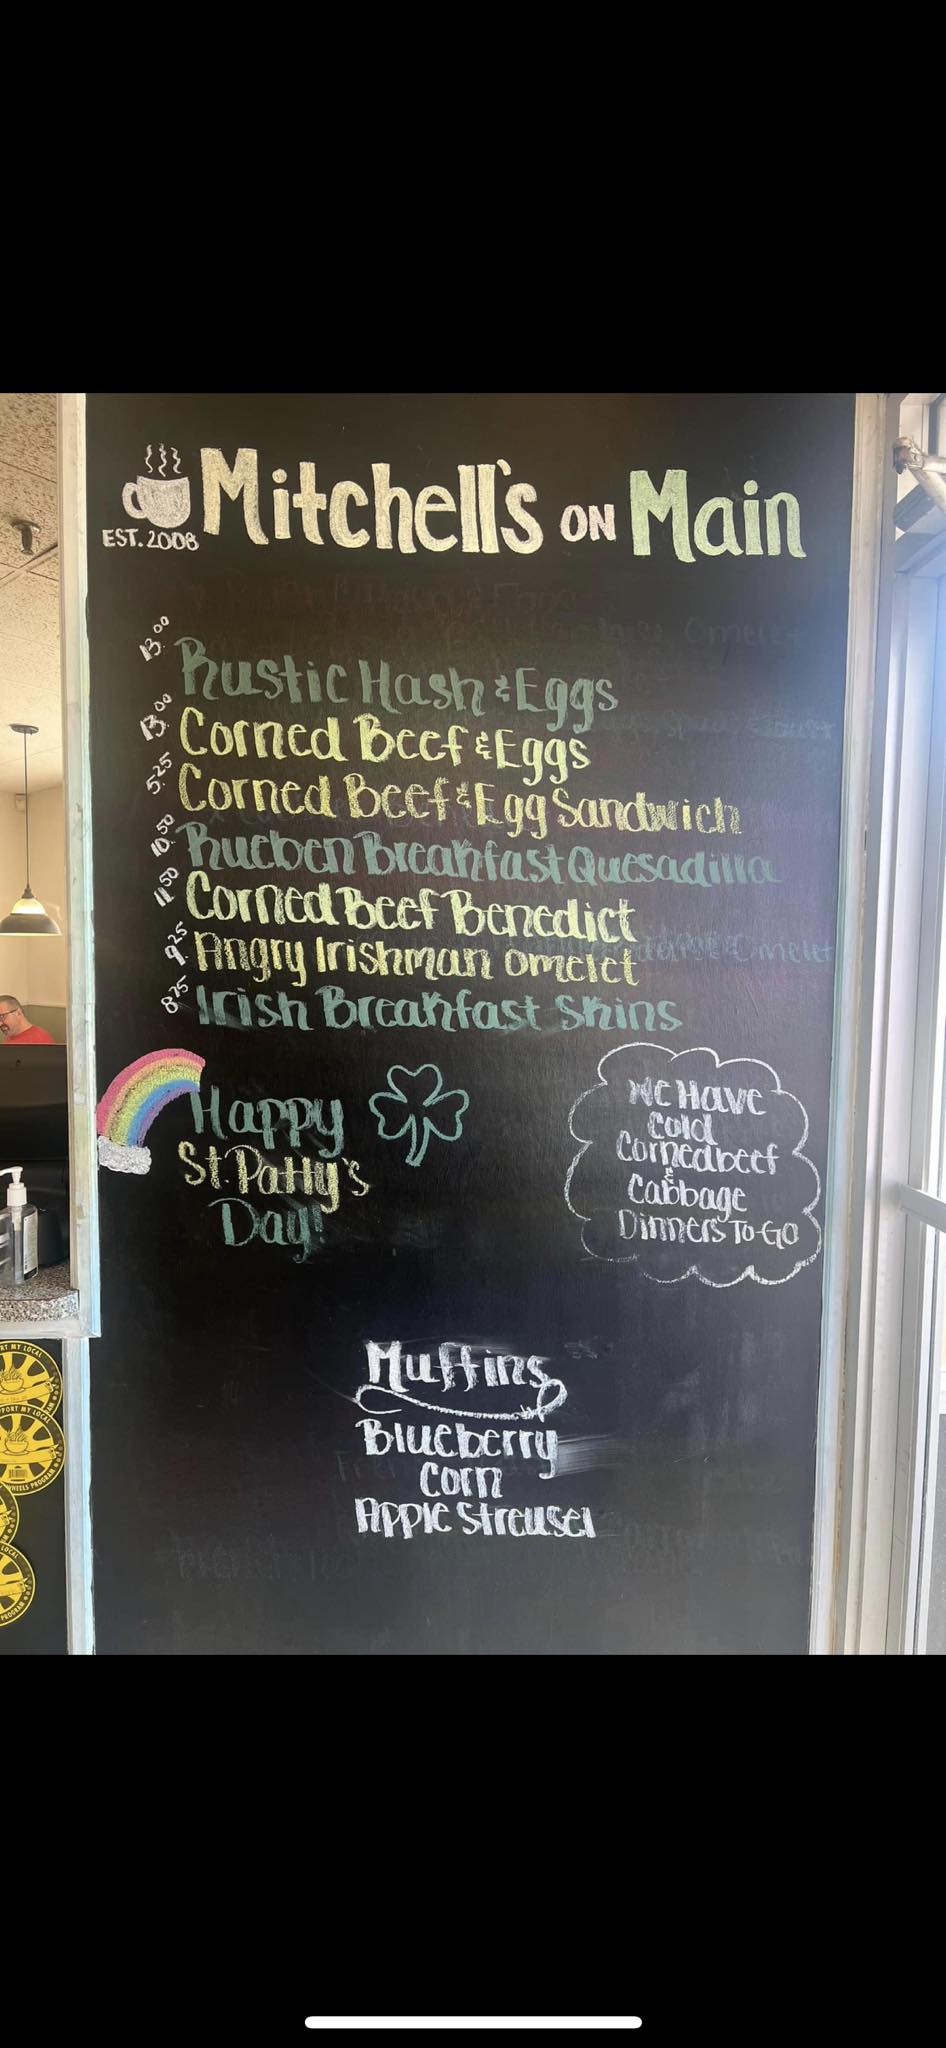 Mitchell's ON Main
EST. 2008
13.00 Rustic Hash & Eggs
13.00 Corned Beef & Eggs
5.25 Corned Beef & Egg Sandwich
10.50 Rueben Breakfast Quesadilla
11.50 Corned Beef Benedict
9.25 Angry Irishman Omelet
8.25 Irish Breakfast Skins
Happy
St. Patty's
Day!
We Have
Cold
Cornedbeef
&
Cabbage
Dinners To-Go
Muffins
Blueberry
Corn
Apple Streusel
RT MY LOCAL
PPORT MY LOCAL
WHEELS PROGRAM
LOCAL
PROGRAM